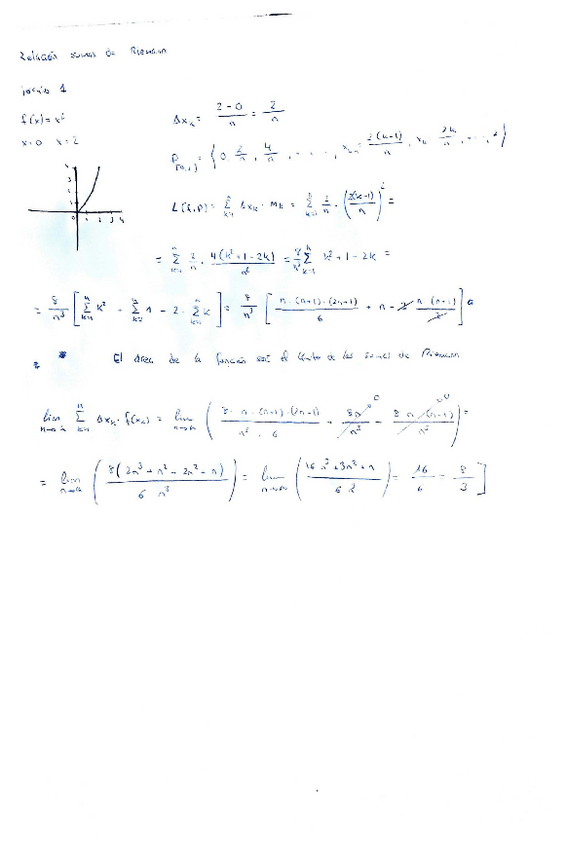 Relación sumas de Riemann
1
f(x) = x²
x=0 x=2
Δx_k = (2-0)/n = 2/n
P = { 0, 2/n, 4/n, ..., x_{k-1} = 2(k-1)/n, x_k = 2k/n, ..., 2 }
L(f,p) = Σ_{k=1}^{n} Δx_k · m_k = Σ_{k=1}^{n} 2/n · (2(k-1)/n)² =
= Σ_{k=1}^{n} 2/n · 4(k²+1-2k)/n² = 8/n³ Σ_{k=1}^{n} k²+1-2k =
= 8/n³ [ Σ_{k=1}^{n} k² + Σ_{k=1}^{n} 1 - 2·Σ_{k=1}^{n} k ] = 8/n³ [ n·(n+1)·(2n+1)/6 + n - 2 n(n+1)/2 ]
El área de la función será el límite de las sumas de Riemann
lim_{n→∞} Σ_{k=1}^{n} Δx_k · f(x_k) = lim_{n→∞} ( 8·n·(n+1)·(2n+1)/(n³·6) + 8n/n³ - 8·n·(n+1)/n³ ) =
= lim_{n→∞} = lim_{n→∞} = 16/6 = 8/3 ]